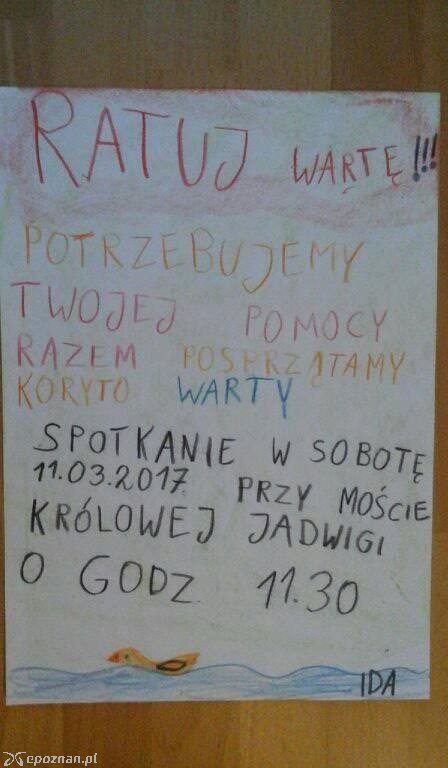 RATUJ WARTĘ!!!
POTRZEBUJEMY
TWOJEJ POMOCY
RAZEM POSPRZĄTAMY
KORYTO WARTY
SPOTKANIE W SOBOTĘ
11.03.2017 PRZY MOŚCIE
KRÓLOWEJ JADWIGI
O GODZ 11.30
IDA
epoznan.pl